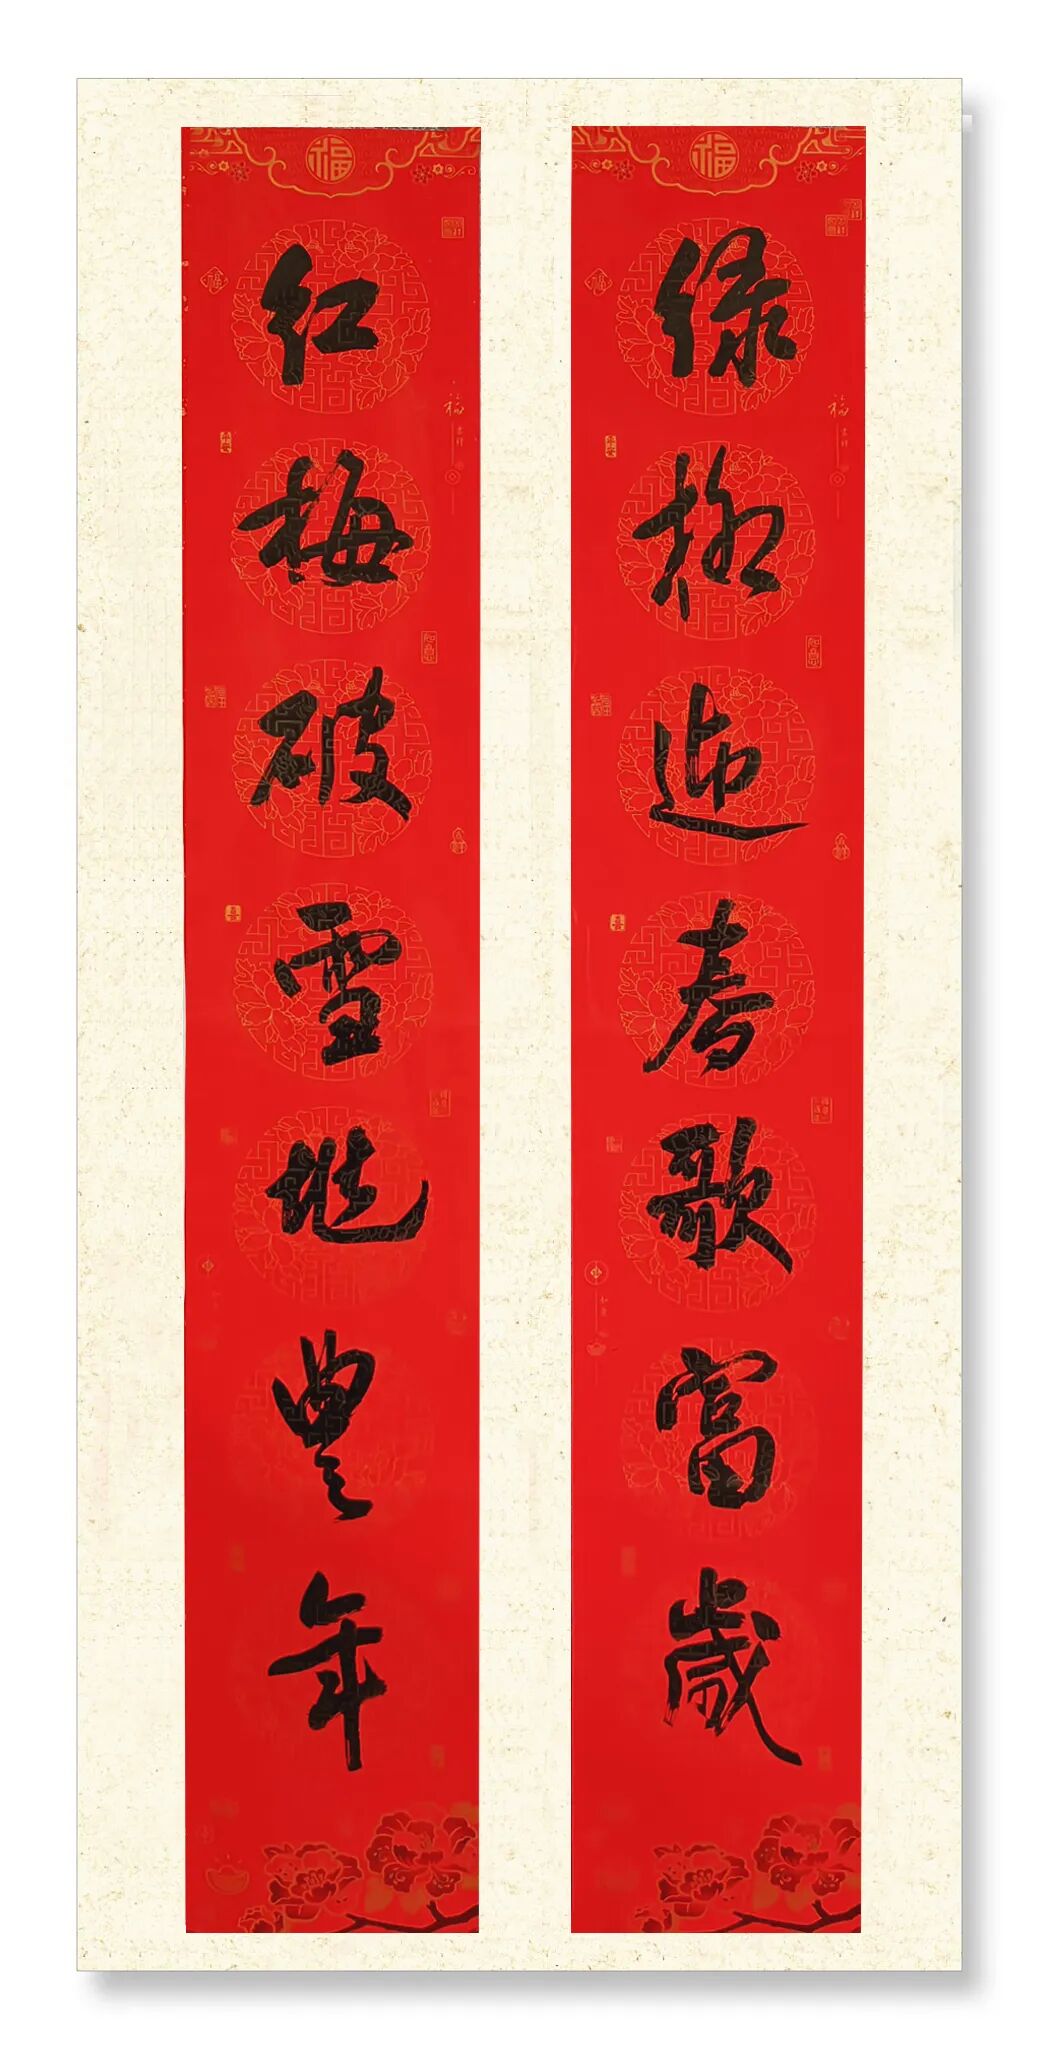 福
绿柳迎春歌富歲
福
红梅破雪兆豐年